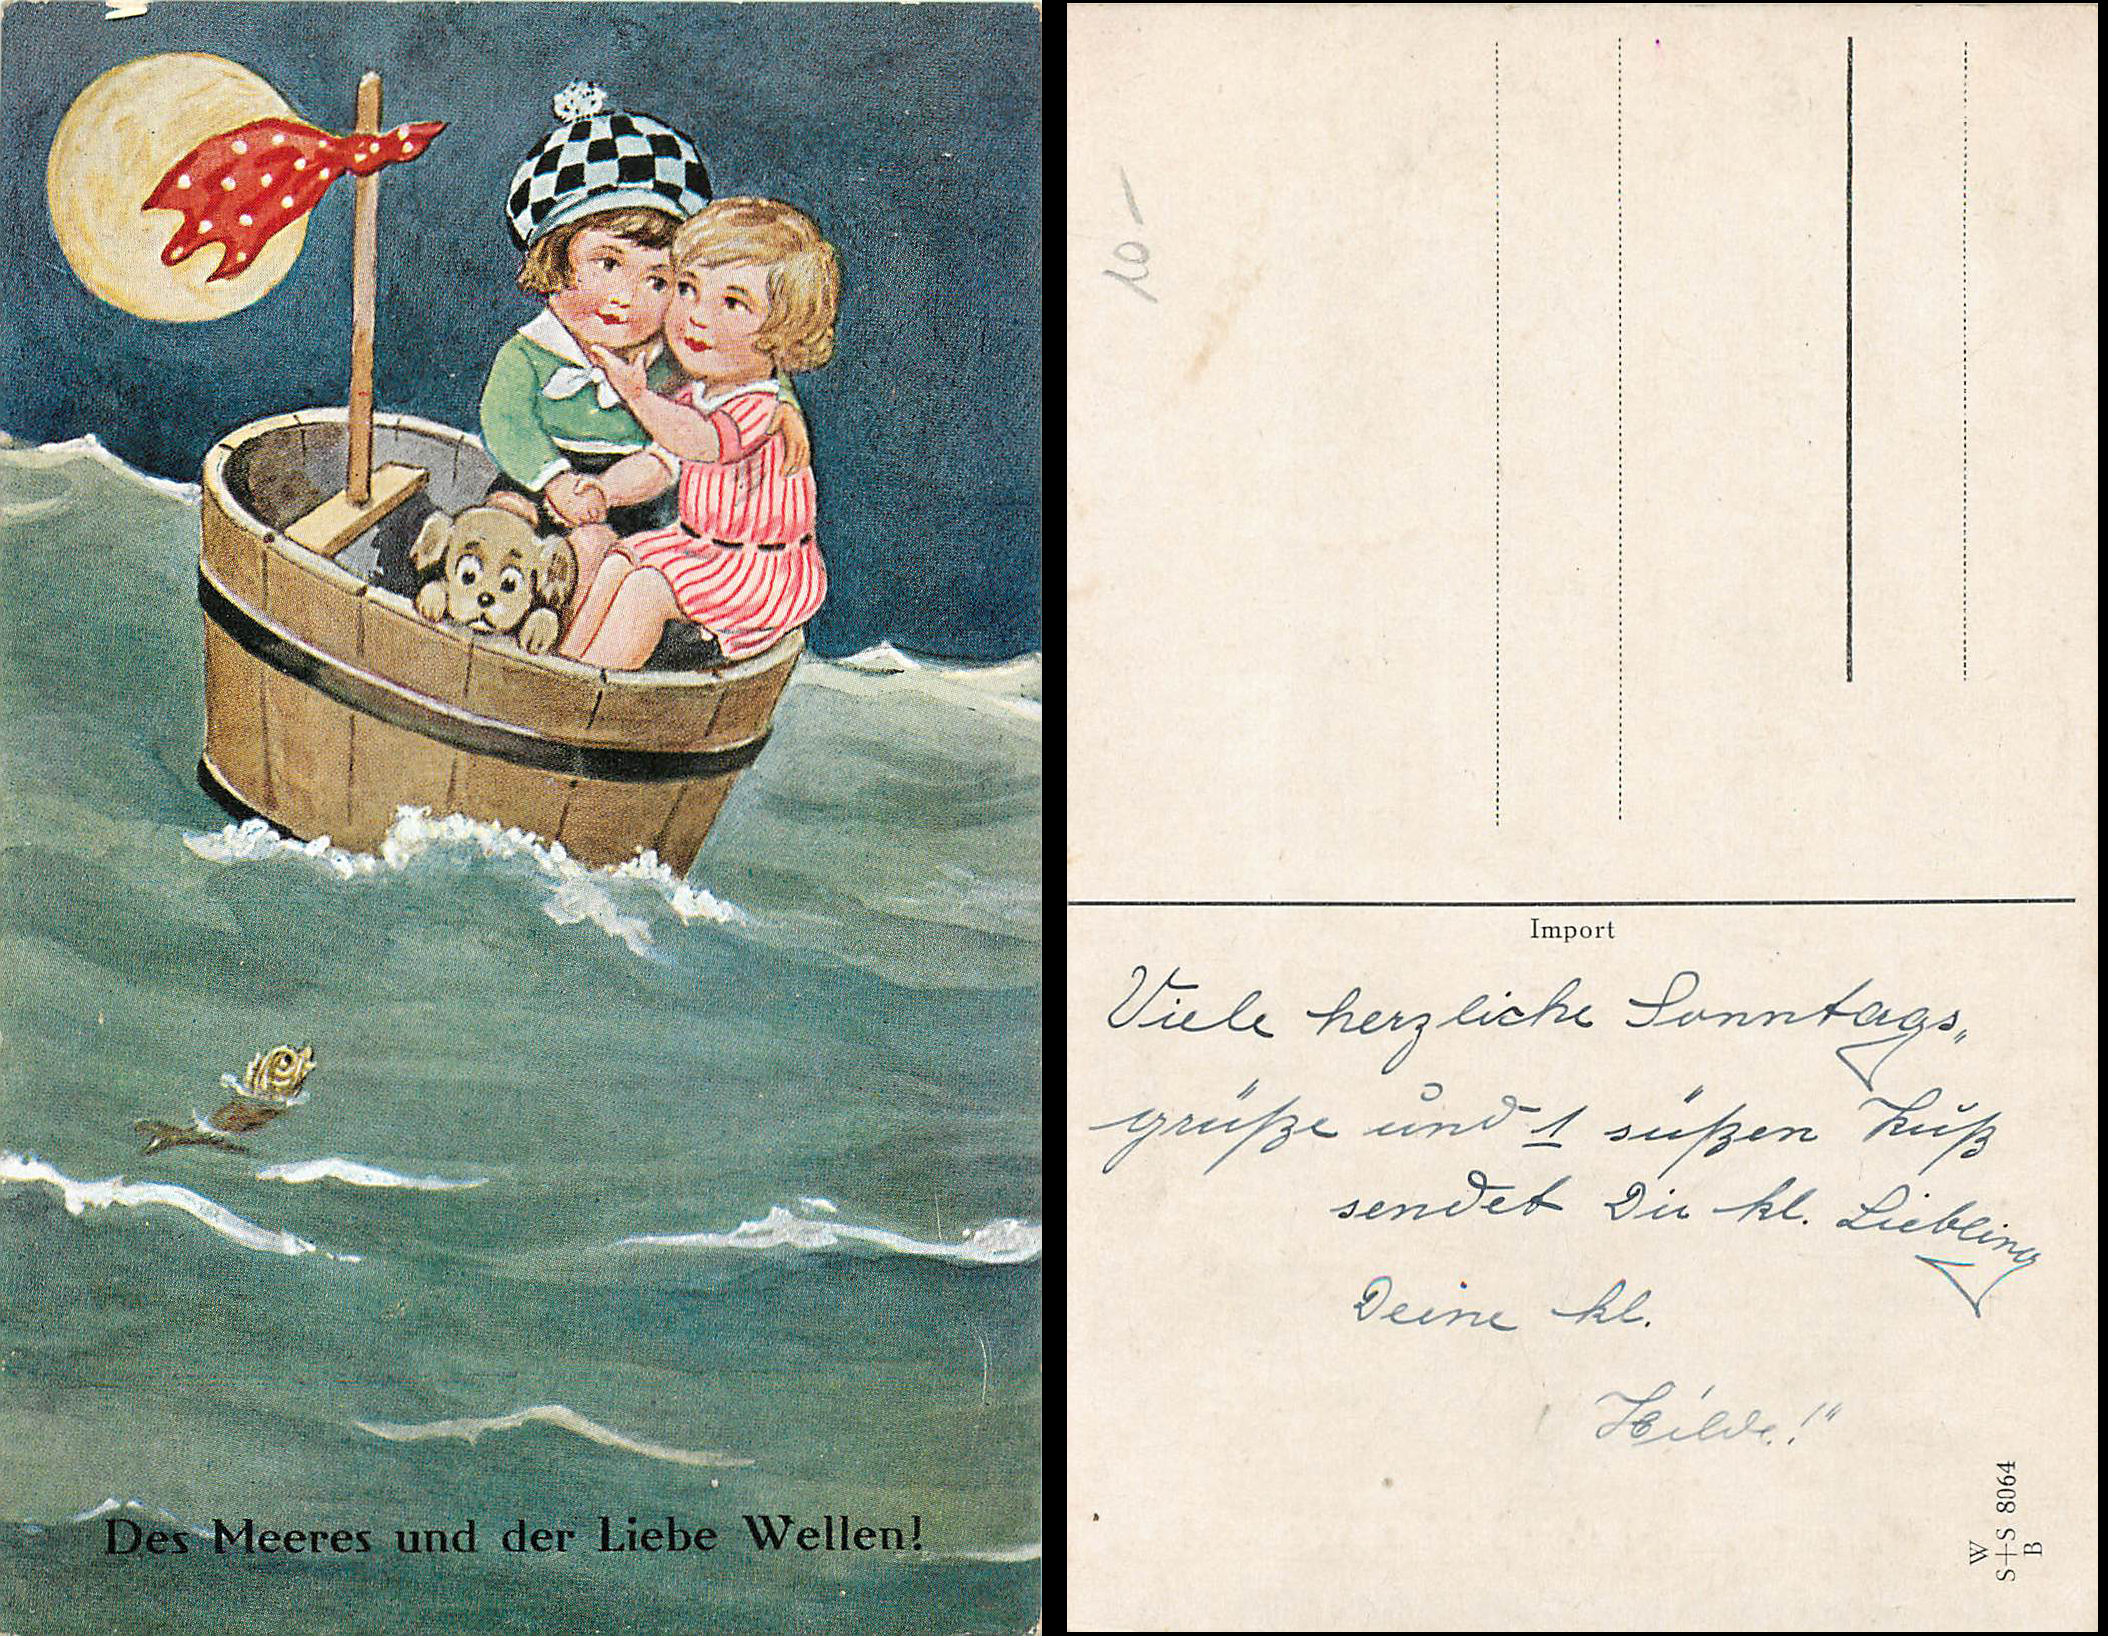 Des Meeres und der Liebe Wellen!
10-
Import
Viele herzliche Sonntags„
grüße und 1 süßen Kuß
sendet Dir kl. Liebling
Deine kl.
Hilde!"
W
S+S 8064
B